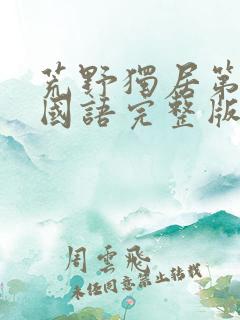 荒野獨居第
國語完整版
周雲飛
未經同意禁止轉載